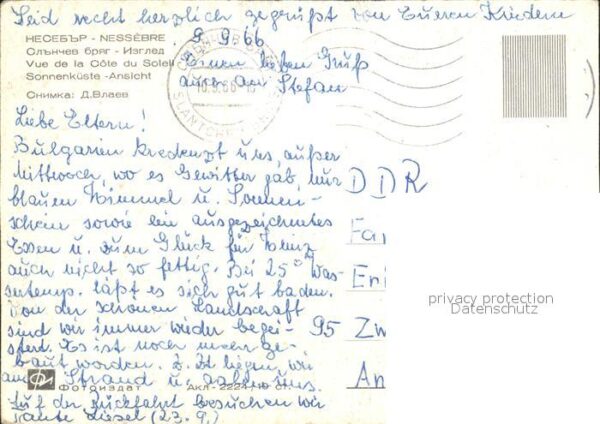 Seid recht herzlich gegrüßt von Eueren Kindern
9.9.66
Einen lieben Gruß
auch an Stefan
НЕСЕБЪР - NESSÈBRE
Слънчев бряг - Изглед
Vue de la Côte du Soleil
Sonnenküste - Ansicht
Снимка: Д. Влаев
Liebe Eltern!
Bulgarien kredenzt uns, außer
Mittwoch, wo es Gewitter gab, nur
blauen Himmel u. Sonnen-
schein sowie ein ausgezeichnetes
Essen u. zum Glück für
auch nicht so fettig. Bei 25° Was-
sertemp. läßt es sich gut baden.
Von der schönen Landschaft
sind wir immer wieder begei-
stert. Es ist noch mehr ge-
baut worden. z. Zt. liegen wir
am Strand u. aalen uns.
Auf der Rückfahrt besuchen wir
Tante Liesel (23.9.)
DDR
Fa
Er
95 Zw
An
Фотоиздат
Акл - 2224
privacy protection
Datenschutz